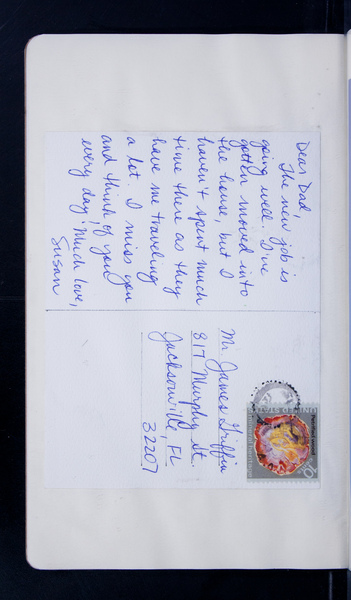 Dear Dad,
The new job is
going well. I've
gotten moved into
the house, but I
haven't spent much
time there as they
have me traveling
a lot. I miss you
and think of you
every day! Much love,
Susan
Mr. James Griffin
817 Murphy St.
Jacksonville, FL
32207